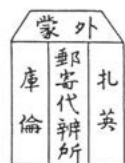 外蒙
扎英
郵寄代辦所
庫倫